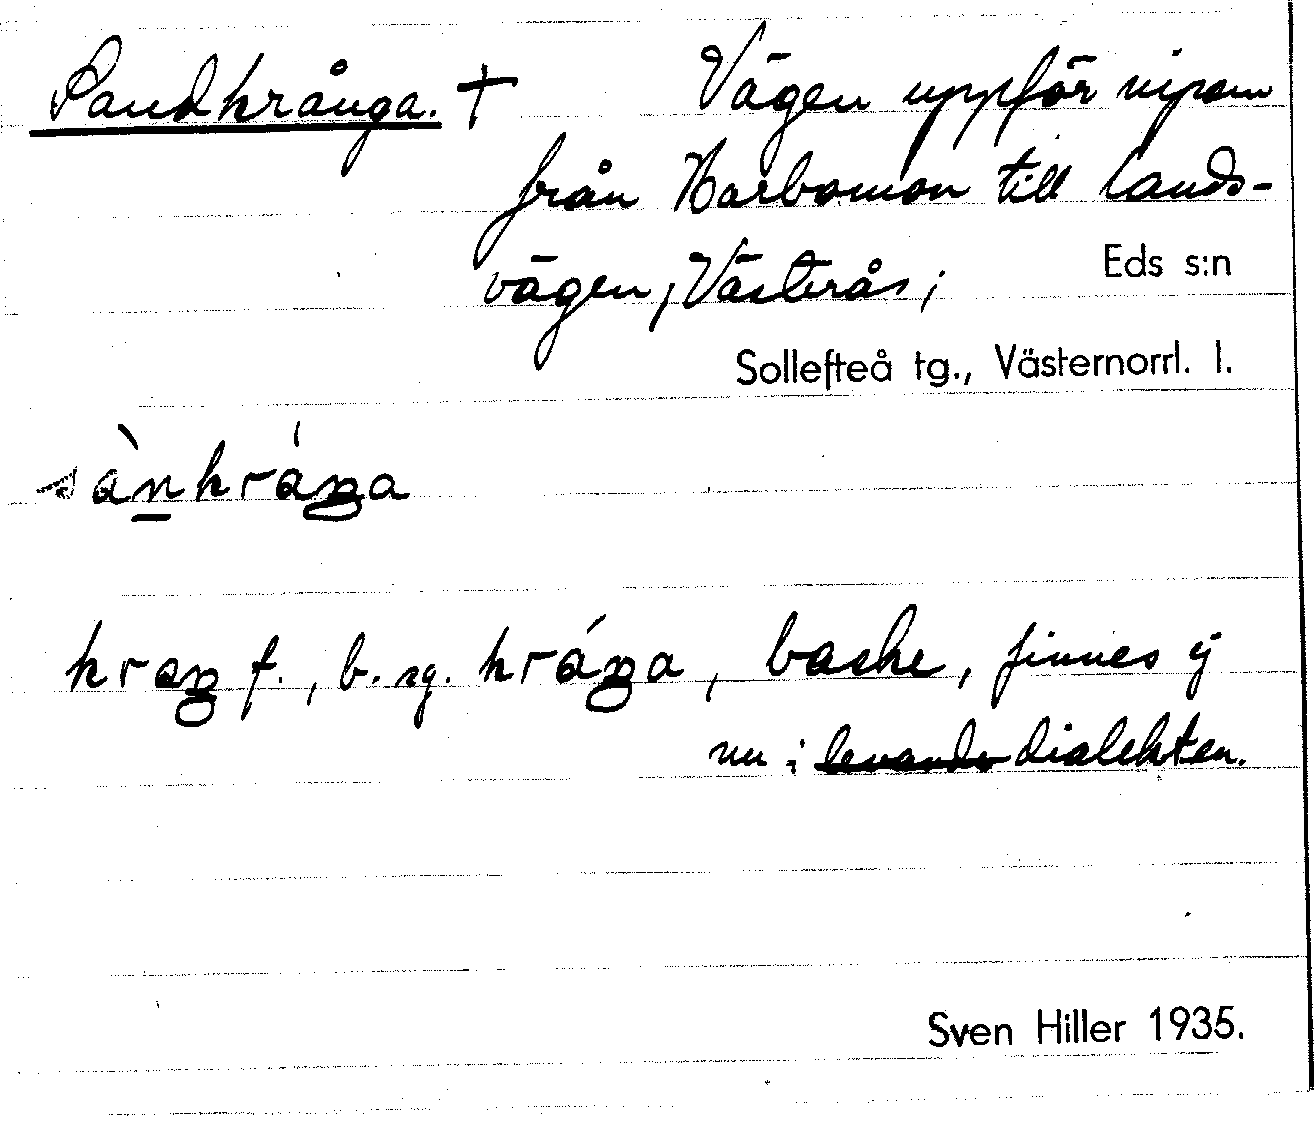 Sandkrånga. † Vägen uppför nipan
från Norbomon till lands-
vägen, Västerås; Eds s:n
Sollefteå tg., Västernorrl. l.
f., b. sg. backe, finnes ej
nu i levande dialekten.
Sven Hiller 1935.